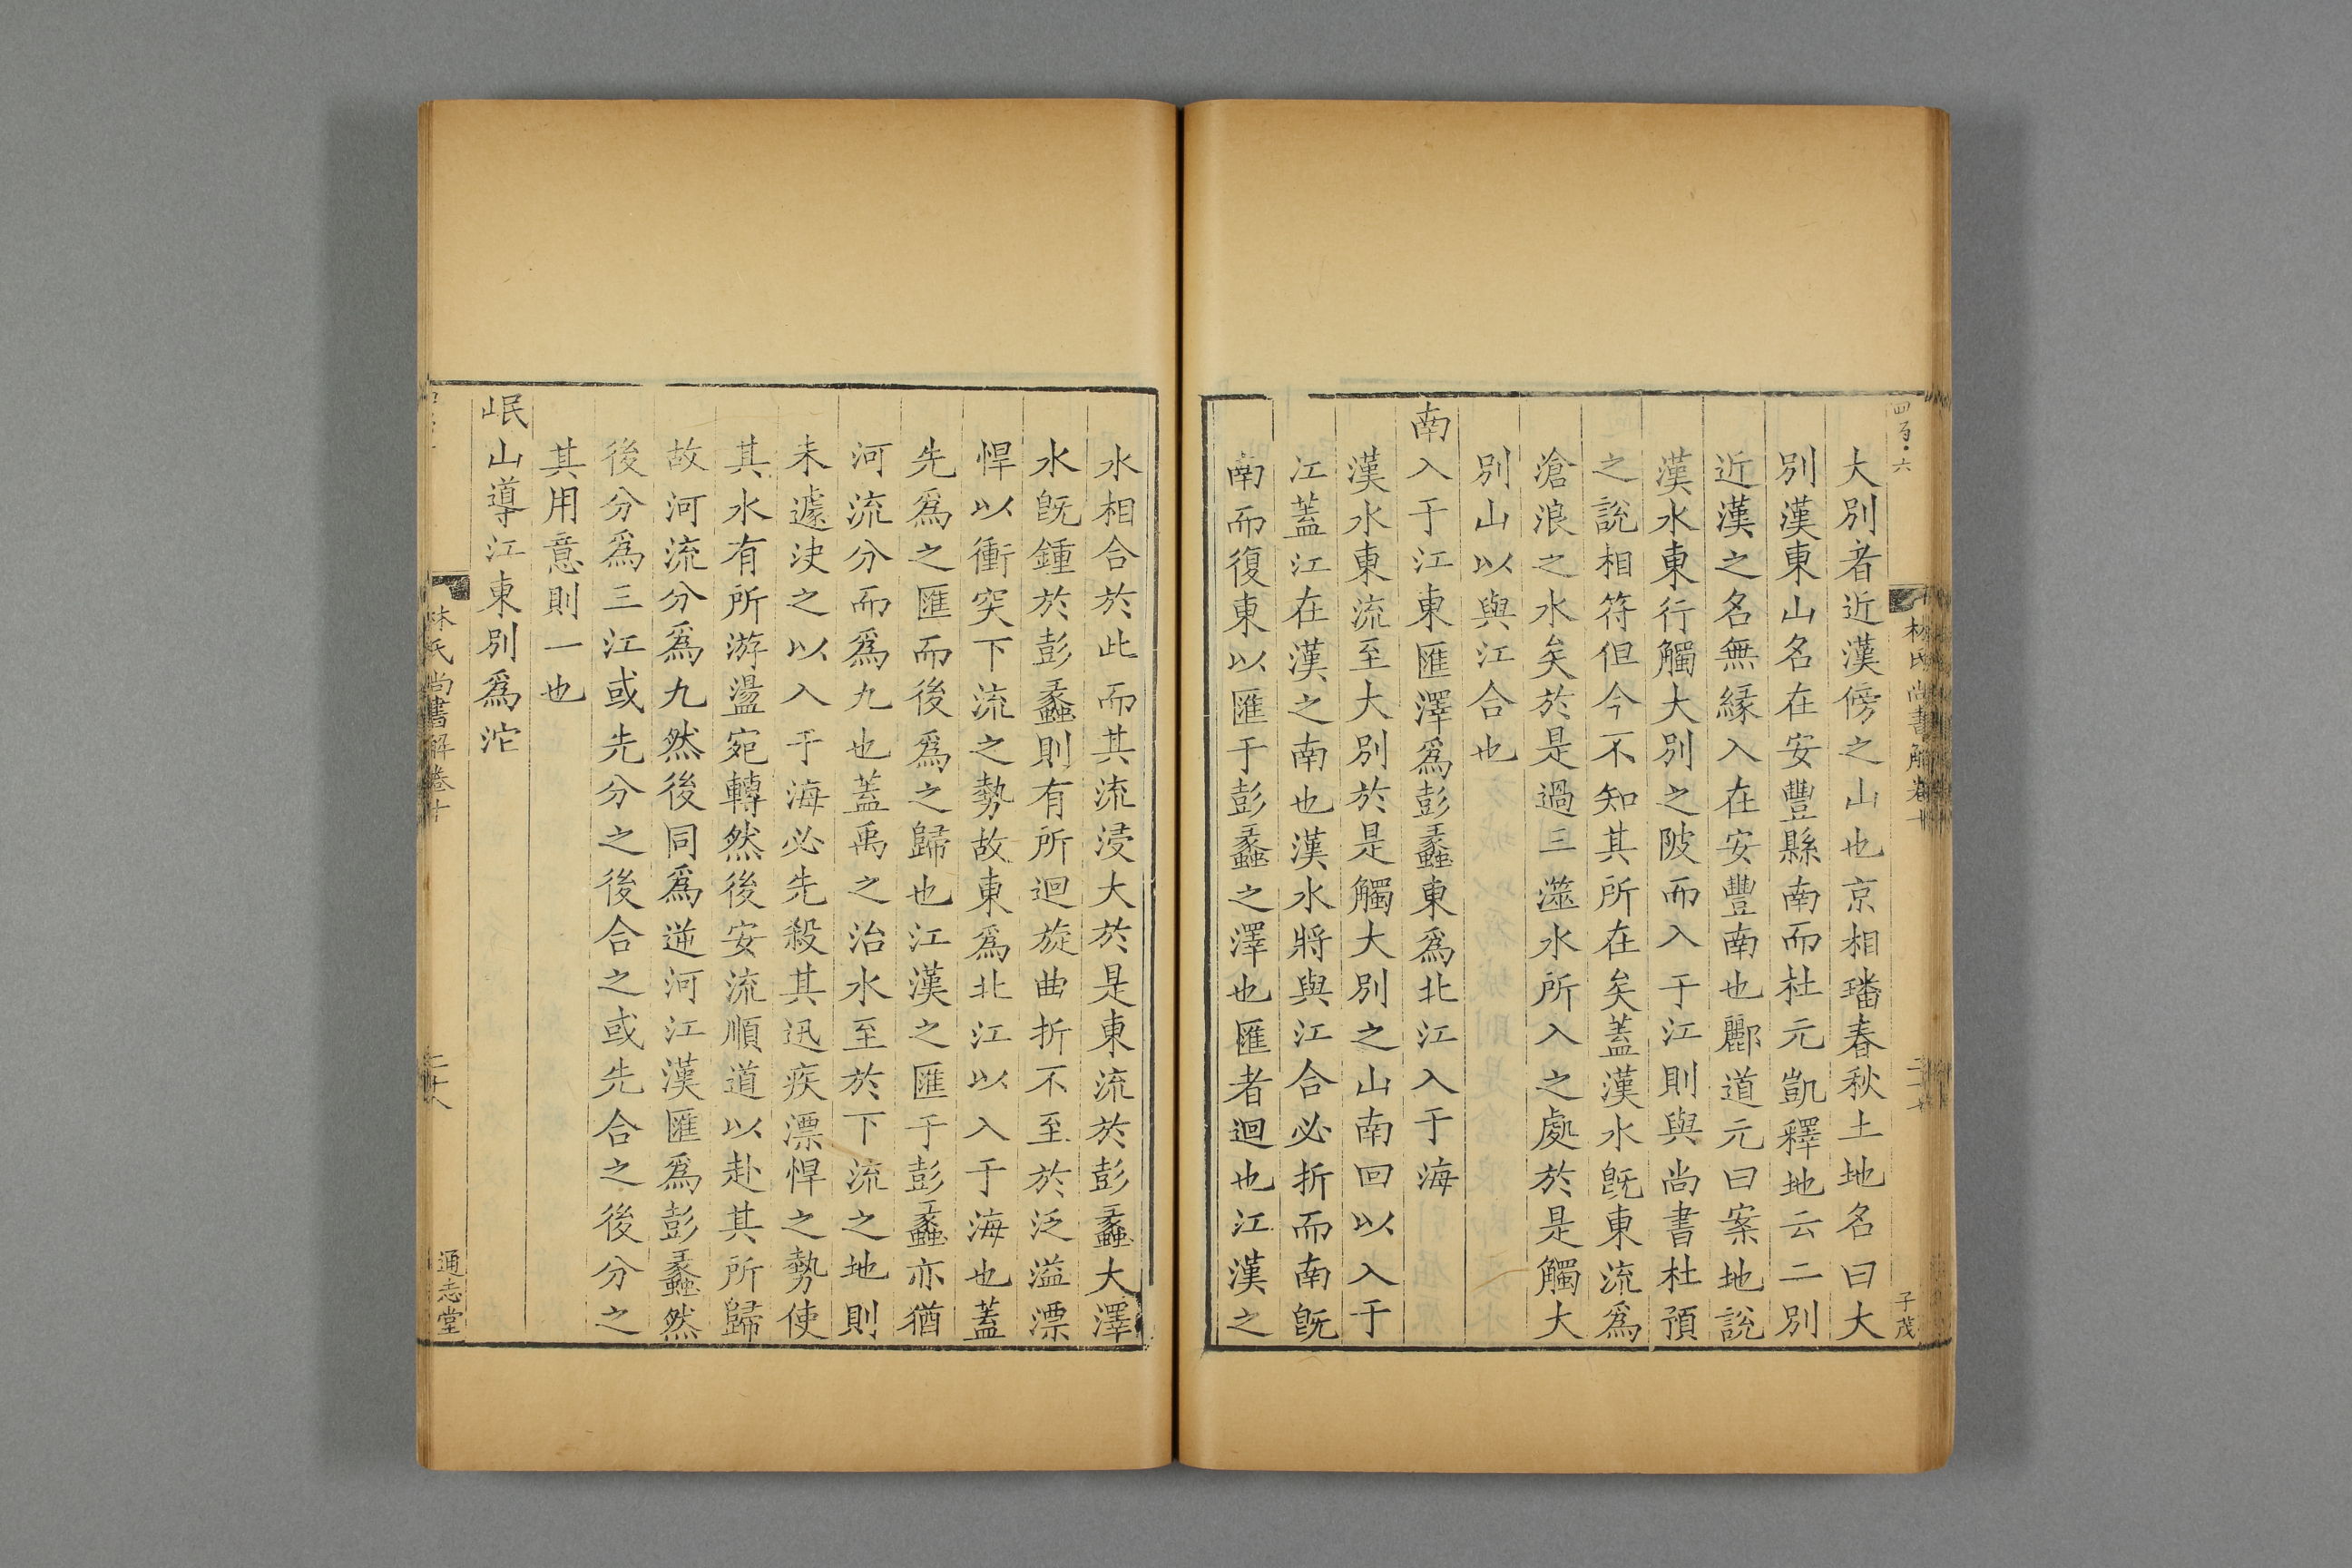 林氏尚書解卷十
子茂
大別者近漢傍之山也京相璠春秋土地名曰大
別漢東山名在安豐縣南而杜元凱釋地云二別
近漢之名無縁入在安豐南也酈道元曰案地說
漢水東行觸大別之陂而入于江則與尚書杜預
之說相符但今不知其所在矣蓋漢水旣東流爲
滄浪之水矣於是過三澨水所入之處於是觸大
別山以與江合也
南入于江東匯澤爲彭蠡東爲北江入于海
漢水東流至大別於是觸大別之山南回以入于
江蓋江在漢之南也漢水將與江合必折而南旣
南而復東以匯于彭蠡之澤也匯者迴也江漢之
水相合於此而其流浸大於是東流於彭蠡大澤
水旣鍾於彭蠡則有所迴旋曲折不至於泛溢漂
悍以衝突下流之勢故東爲北江以入于海也蓋
先爲之匯而後爲之歸也江漢之匯于彭蠡亦猶
河流分而爲九也蓋禹之治水至於下流之地則
未遽決之以入于海必先殺其迅疾漂悍之勢使
其水有所游盪宛轉然後安流順道以赴其所歸
故河流分爲九然後同爲逆河江漢匯爲彭蠡然
後分爲三江或先分之後合之或先合之後分之
其用意則一也
岷山導江東別爲沱
林氏尚書解卷十
通志堂